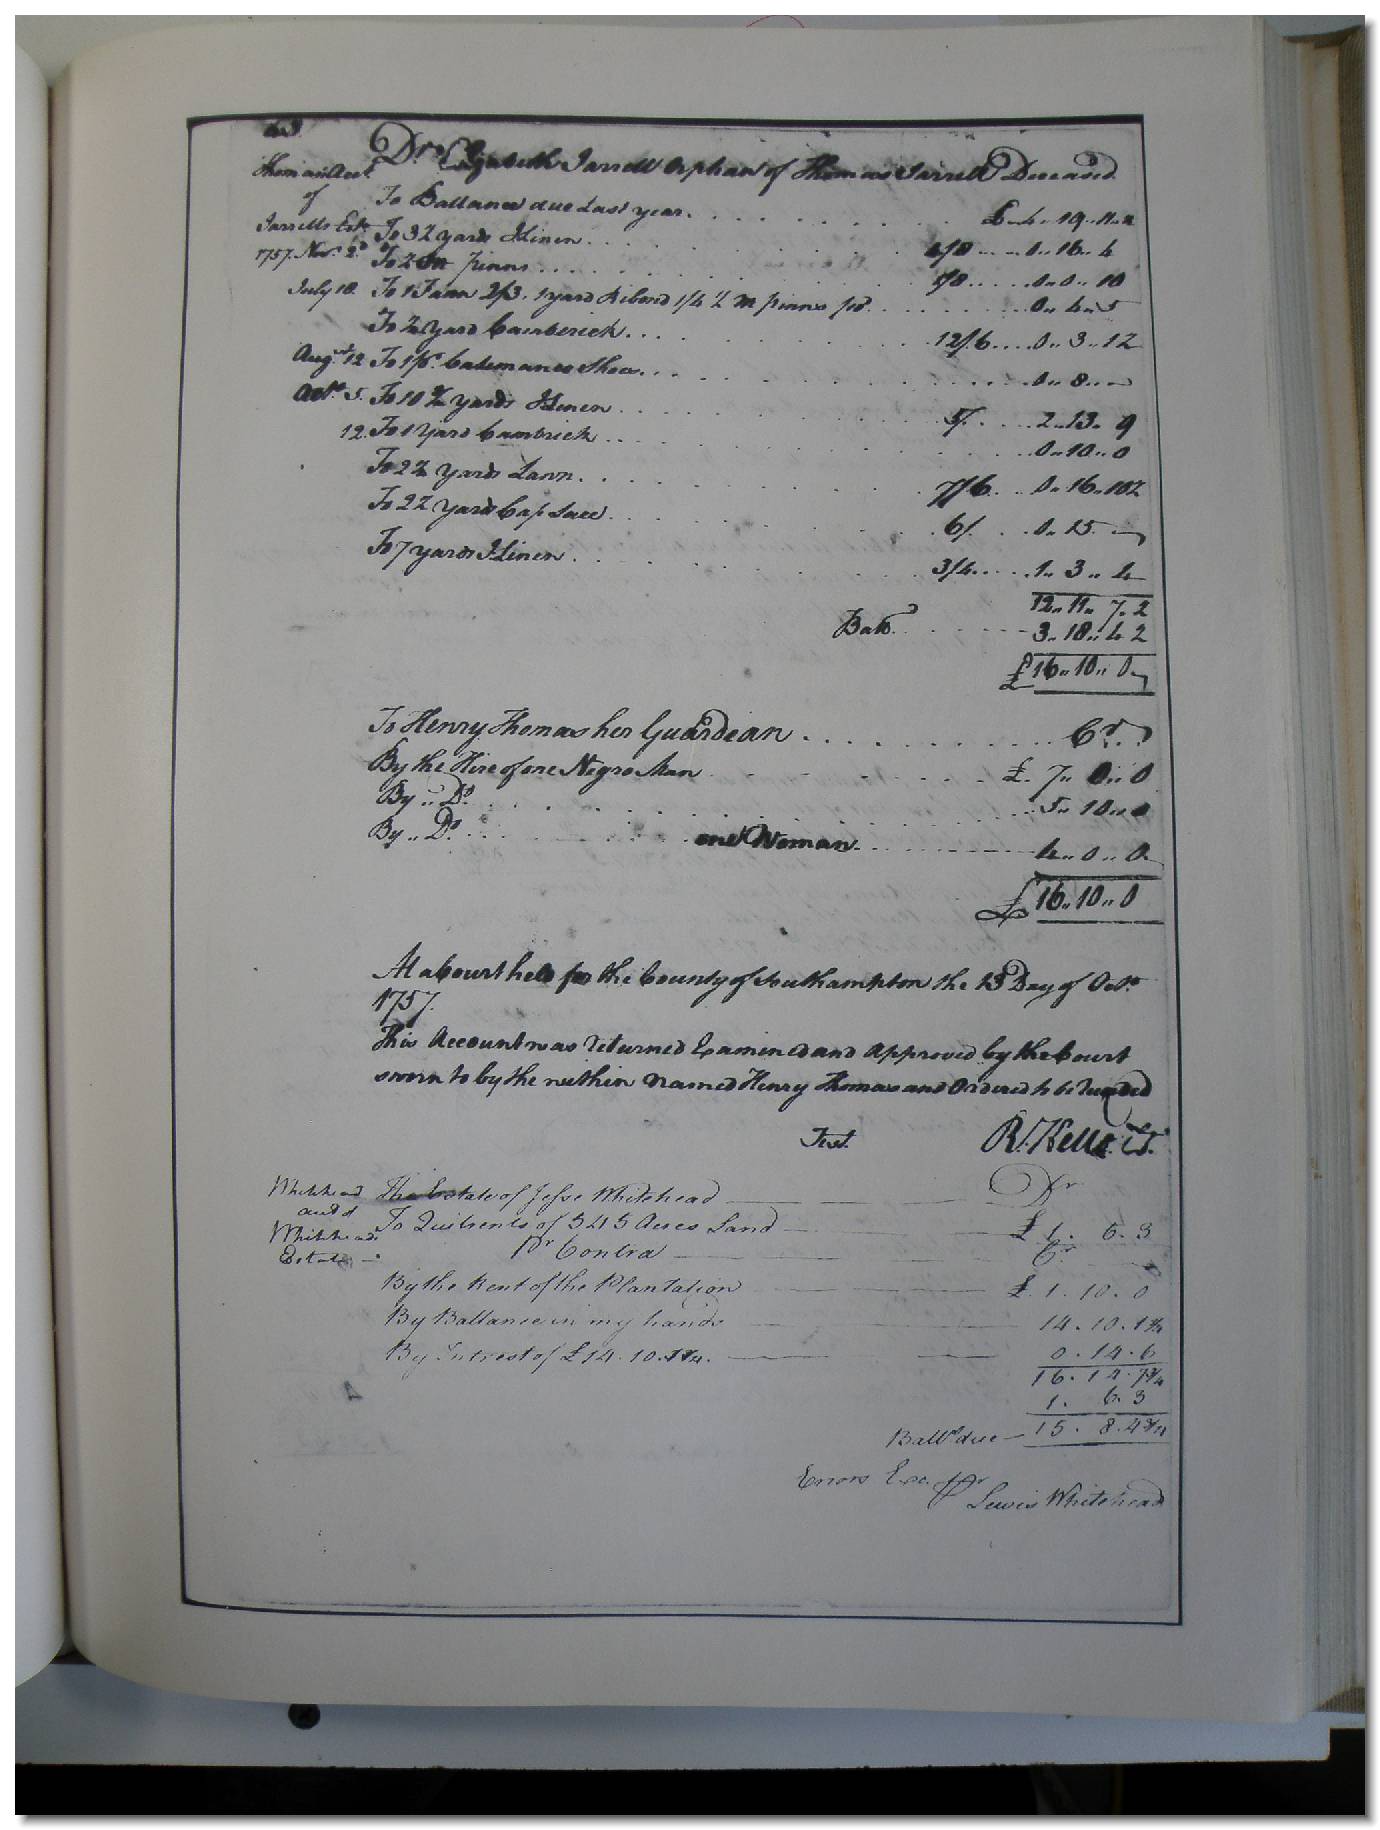 43
Dr. Elizabeth Jarrell Orphan of Thomas Jarrell Deceased
Thomas's Acct
of
Jarrells Est.
To Ballance due Last year £ 4 .. 19 .. 11
To 3½ yards I Linen 4/8 0 .. 16 .. 4
1757. Novr. 2d To 2 m pinns /8 0 .. 0 .. 10
July 18. To 1 Fann 2/3. 1 yard Ribond 1/4 ½ m pinns 0 .. 4 .. 5
To ¼ yard Camberick 12/6 0 .. 3 .. 1½
Augst. 12 To 1 pr. Calemanco Shoes 0 .. 8 ..
Octr. 5. To 10¾ yards I Linen 5/. 2 .. 13 .. 9
12. To 1 Yard Cambrick 0 .. 10 .. 0
To 2¼ yards Lawn 7/6 0 .. 16 .. 10½
To 2½ yards Cap Lace 6/. 0 .. 15
To 7 yards I Linen 3/4 1 .. 3 .. 4
12 .. 11 .. 7 . 2
Balla. 3 .. 18 .. 4 2
£ 16 .. 10 .. 0
To Henry Thomas her Guardian Cr.
By the Hire of one Negro Man £. 7 .. 0 .. 0
By .. Do. 5 .. 10 .. 0
By .. Do. one Woman 4 .. 0 .. 0
£ 16 .. 10 .. 0
At a Court held for the County of Southampton the 13 Day of Octr.
1757.
This Account was returned Examined and Approved by the Court
sworn to by the within Named Henry Thomas and Ordered to be recorded
Test. R. Kello
Whitehead
acct of
Whitehead's
Estate
The Estate of Jesse Whitehead Dr
To Quitrents of 545 Acres Land £ 1. 6. 3
Pr Contra Cr
By the Rent of the Plantation £. 1. 10. 0
By Ballance in my hands 14. 10. 1¾
By Intrest of £14. 10. 1¾. 0. 14. 6
16. 14. 7¾
1. 6. 3
Balle. due 15. 8. 4¾
Errors Exc. pr
Lewis Whitehead